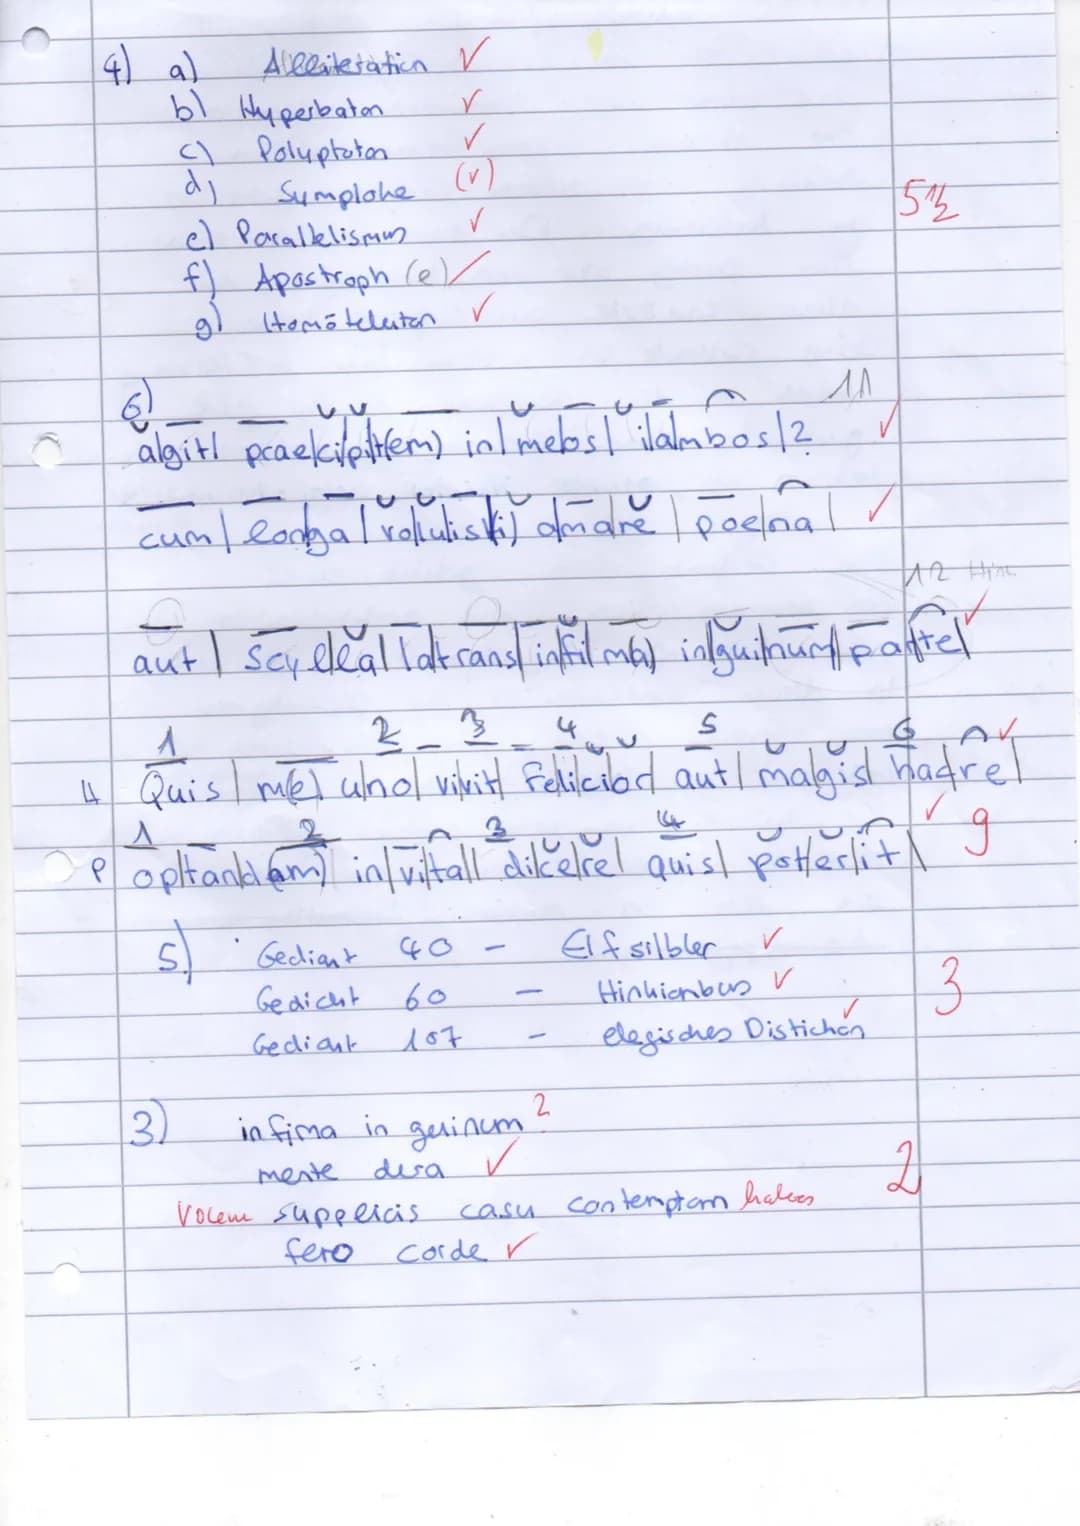 4) a) Alliteration ✓
b) Hyperbaton ✓
c) Polyptoton ✓
d) Symplohe (✓)
5½
e) Parallelismus ✓
f) Apostroph (e) ✓
g) Homöteleuton ✓
6) 11
algit| prae|cipit(em) in| meos| iambos|? ✓
cum| longa| voluist(i) amare | poena| ✓
12 Hink
aut | Scylla| latrans| infi|m(a) in|guinum| parte| ✓
1 2 3 4 5 6
H Quis| m(e) uno| vivit| felicior| aut| magis| hac re| ✓
1 2 3 4
P optand(am) in| vita|| dicere| quis| poterit| ✓ 9
5.) Gedicht 40 - Elfsilbler ✓
Gedicht 60 - Hinkiambus ✓ 3
Gedicht 107 - elegisches Distichon ✓
3) infima in guinum ?
mente dura ✓ 2
Vocem supplicis casu contemptam haberes
fero corde ✓